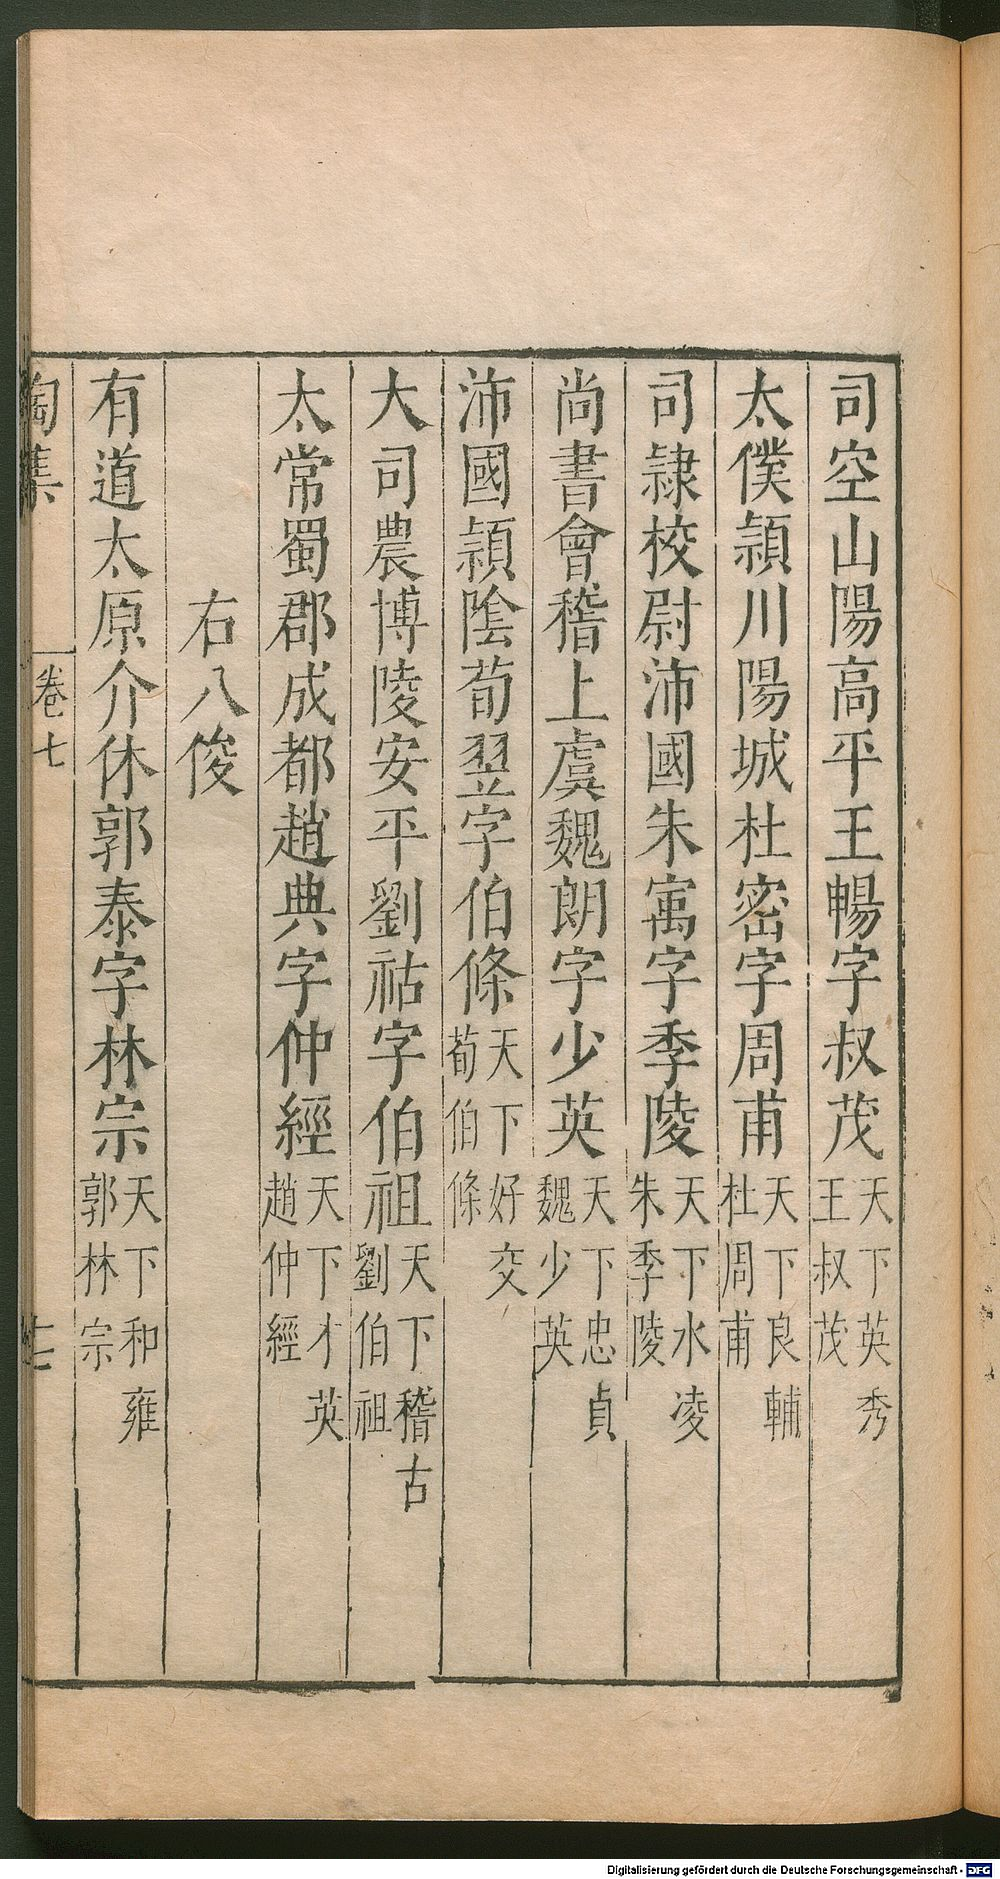 司空山陽高平王暢字叔茂天下英秀王叔茂
太僕潁川陽城杜密字周甫天下良輔杜周甫
司隷校尉沛國朱㝢字季陵天下水凌朱季陵
尚書會稽上虞魏朗字少英天下忠貞魏少英
沛國頴陰荀翌字伯條天下好交荀伯條
大司農博陵安平劉祐字伯祖天下稽古劉伯祖
太常蜀郡成都趙典字仲經天下才英趙仲經
右八俊
有道太原介休郭泰字林宗天下和雍郭林宗
陶集 卷七 七
Digitalisierung gefördert durch die Deutsche Forschungsgemeinschaft - DFG